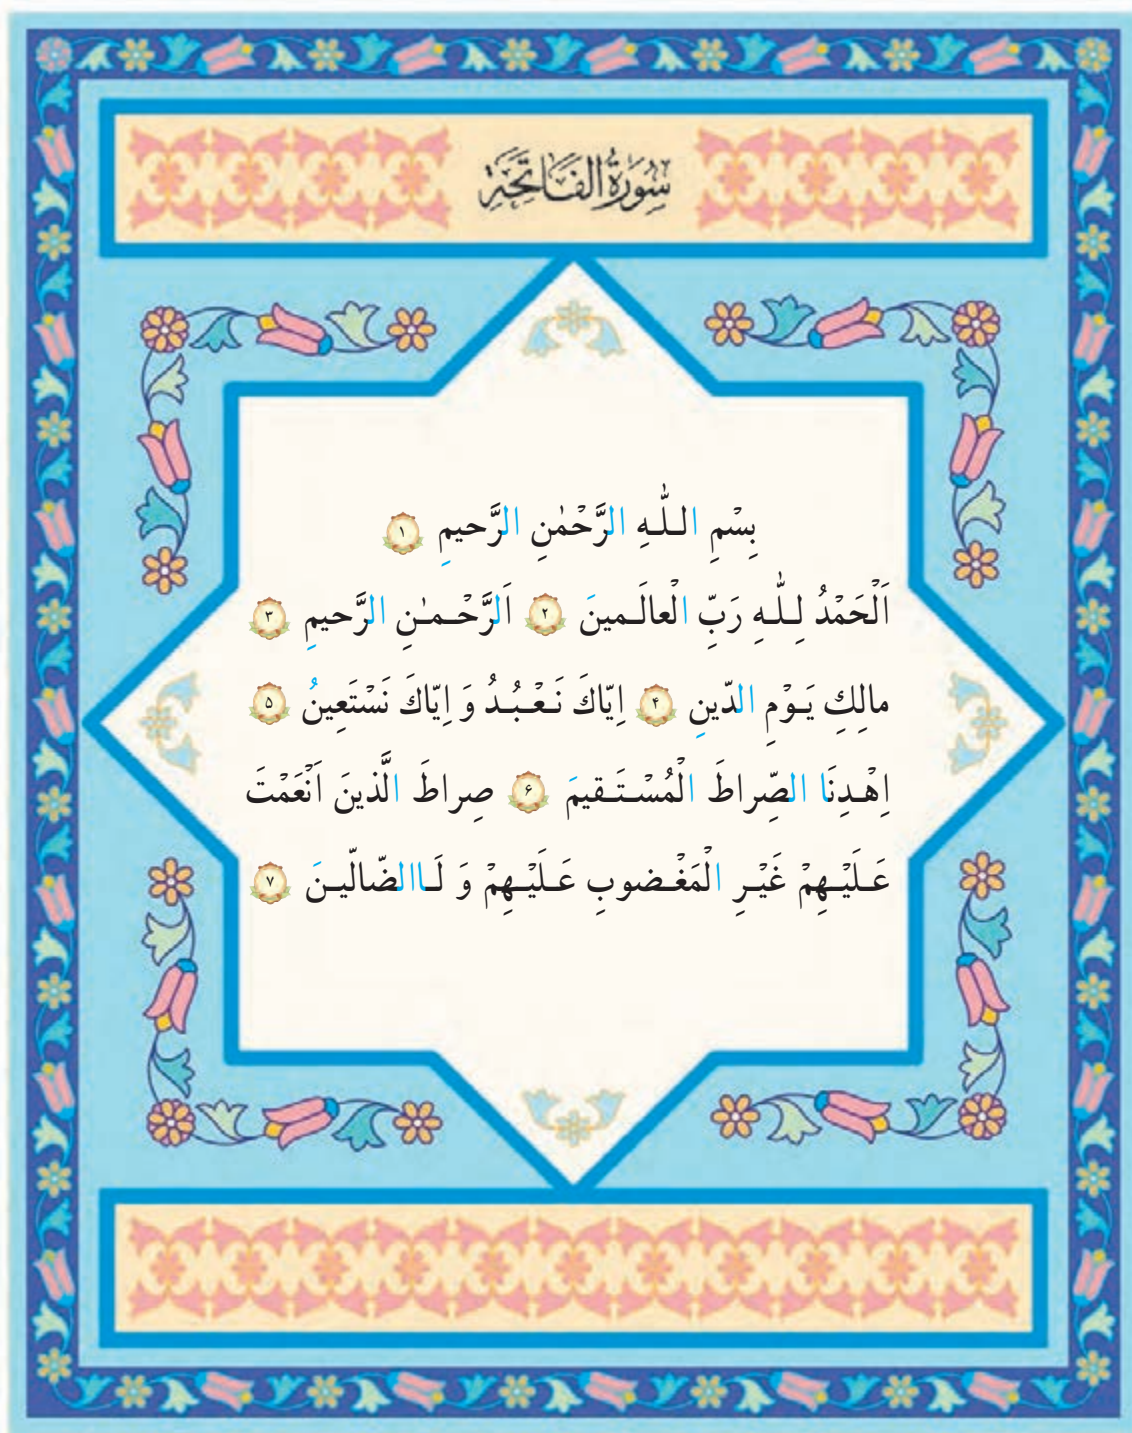 سُورَةُ الفَاتِحَةِ
بِسْمِ اللّٰهِ الرَّحْمٰنِ الرَّحیمِ ۱
اَلْحَمْدُ لِلّٰهِ رَبِّ الْعالَمینَ ۲ اَلرَّحْمـٰنِ الرَّحیمِ ۳
مالِكِ یَوْمِ الدّینِ ۴ اِیّاكَ نَعْبُدُ وَ اِیّاكَ نَسْتَعِینُ ۵
اِهْدِنَا الصِّراطَ الْمُسْتَقیمَ ۶ صِراطَ الَّذینَ اَنْعَمْتَ
عَلَیْهِمْ غَیْرِ الْمَغْضوبِ عَلَیْهِمْ وَ لَاالضّالّینَ ۷